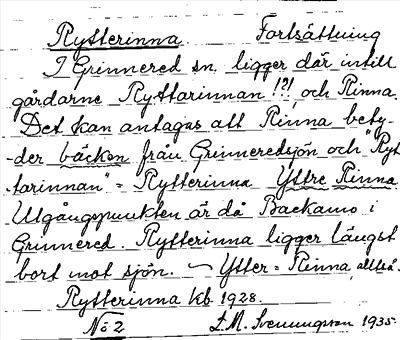 Rytterinna Fortsättning
I Grinnered sn. ligger där intill
gårdarne Ryttarinnan !?! och Rinna.
Det kan antagas att Rinna bety-
-der bäcken från Grinneredsjön och "Ryt
-tarinnan" = Rytterinna Yttre Rinna
Utgångspunkten är då Backamo i
Grinnered. Rytterinna ligger längst
bort mot sjön. ~ Ytter = Rinna, alltså.
Rytterinna kb. 1928.
No 2 L.M. Svenungson 1935.